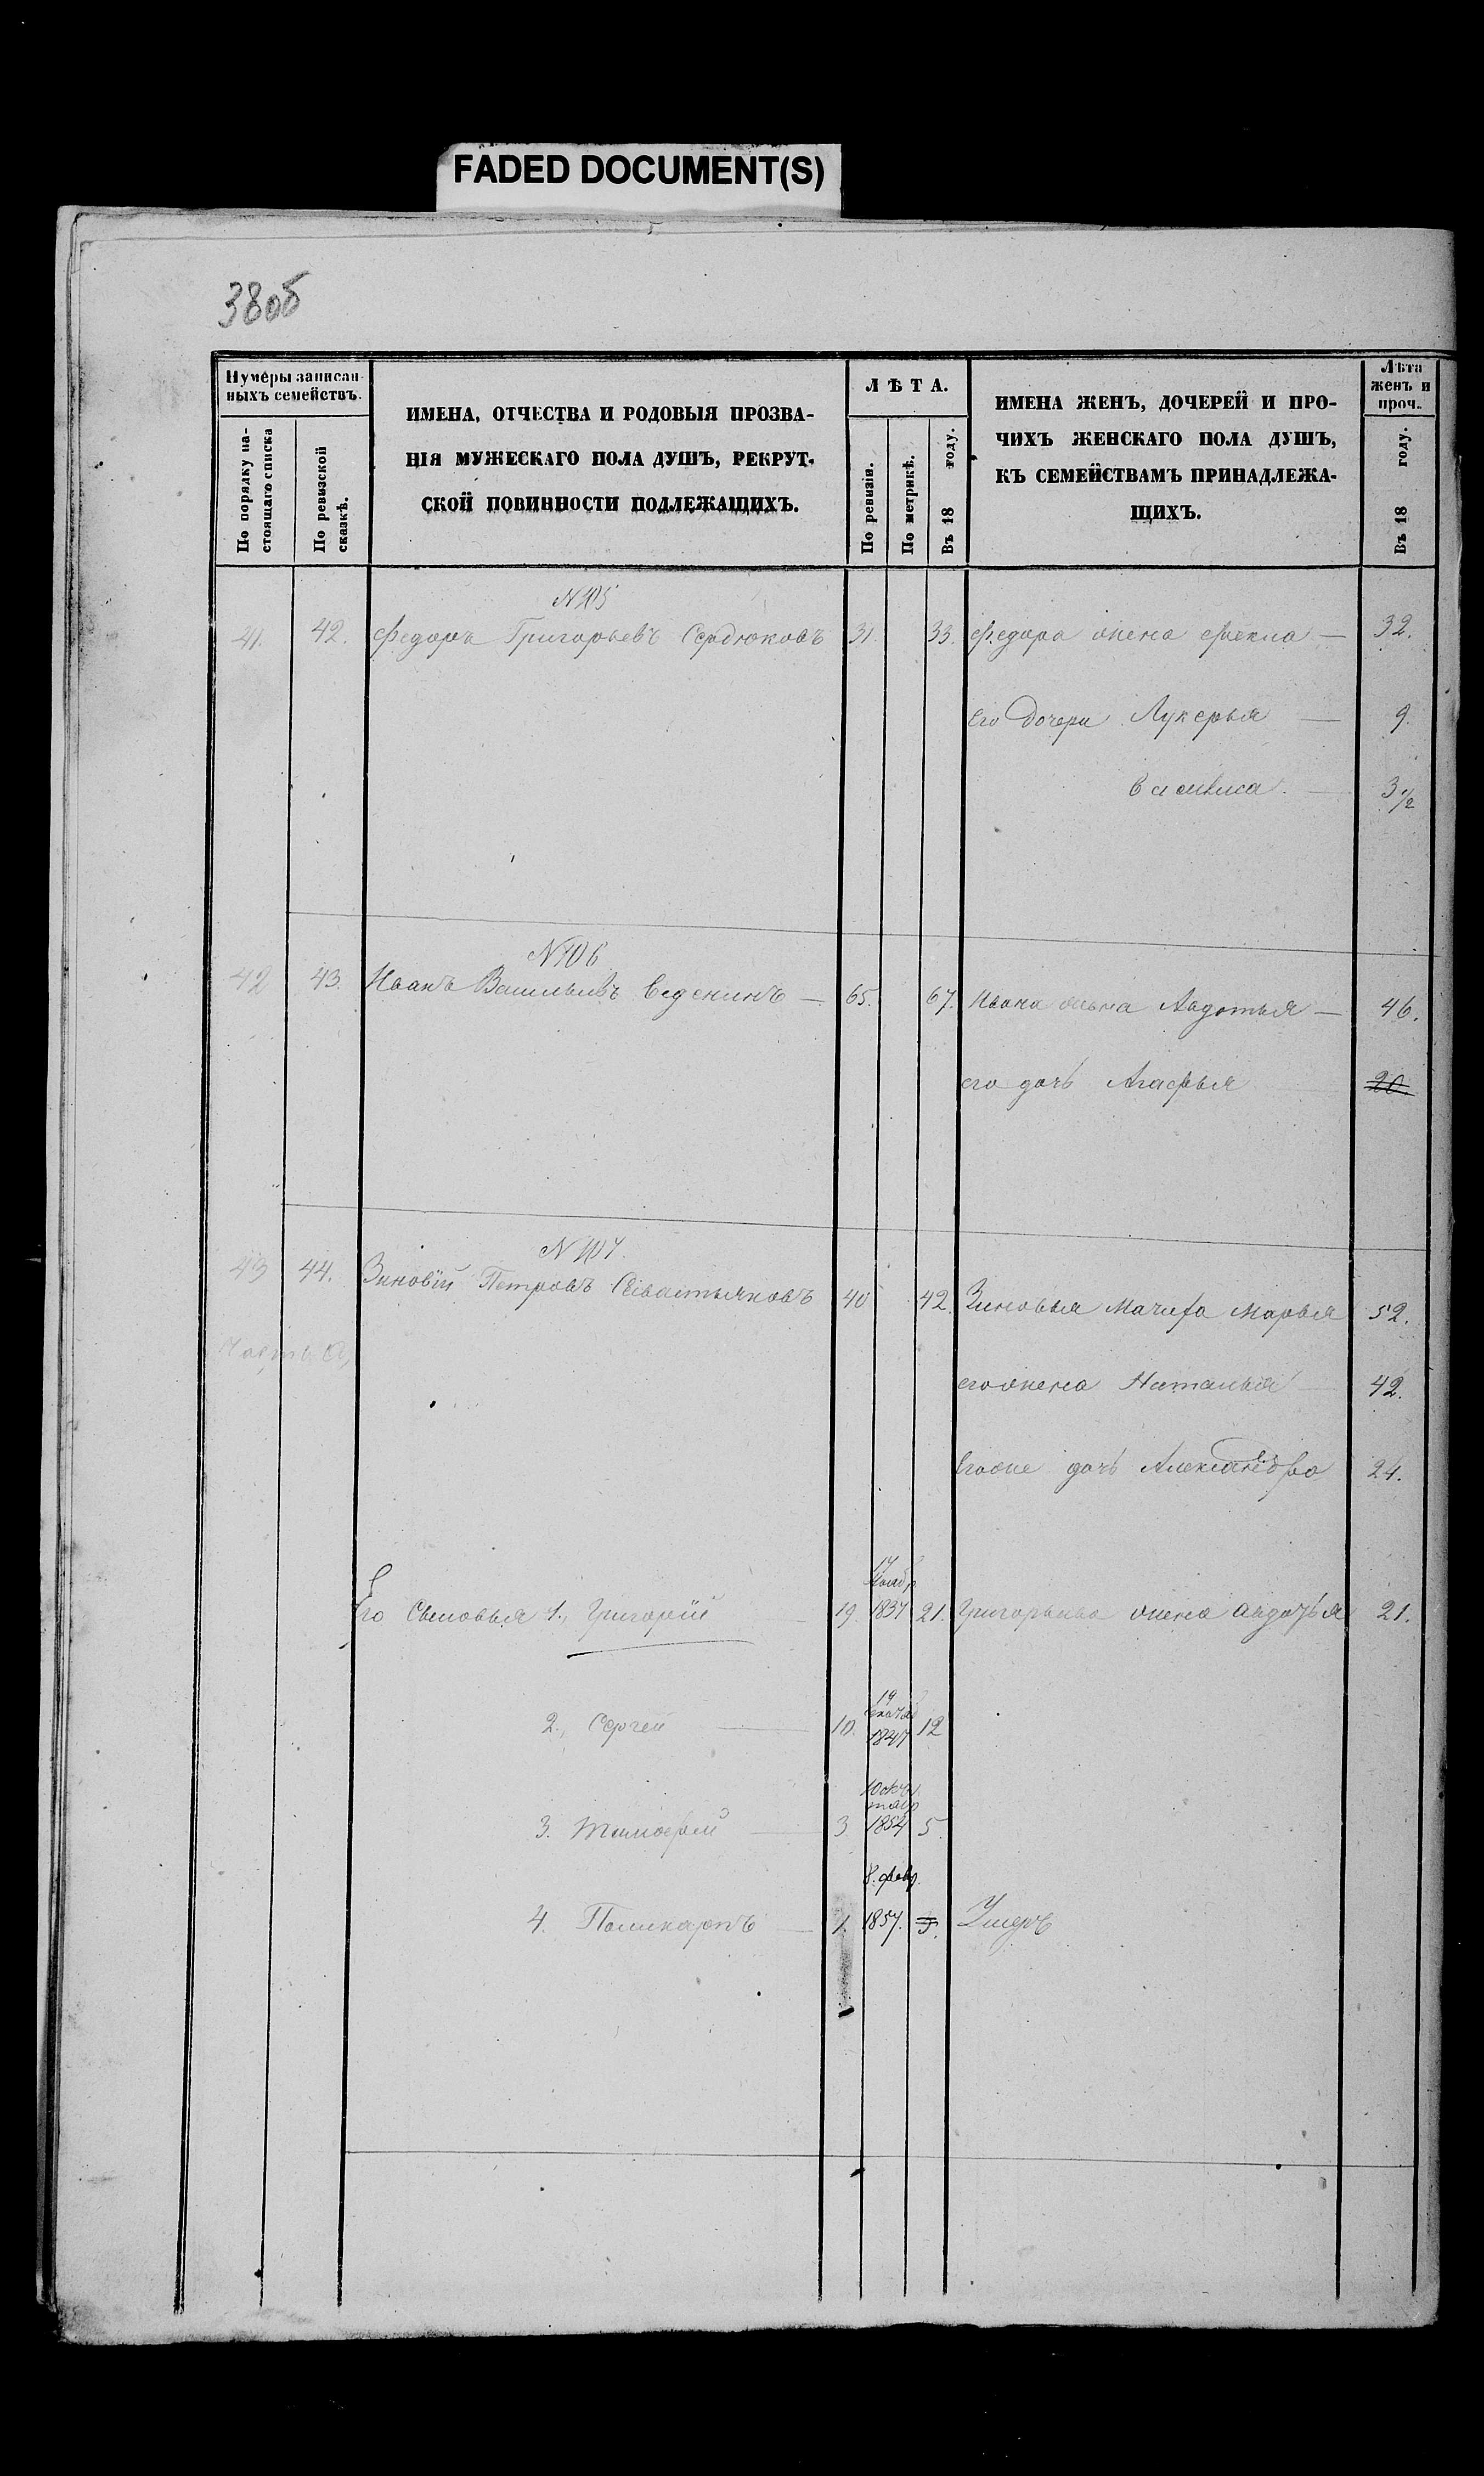 FADED DOCUMENT(S)
38об
Нумеры записанныхъ семействъ.
По порядку настоящаго списка
По ревизской сказкѣ.
ИМЕНА, ОТЧЕСТВА И РОДОВЫЯ ПРОЗВА-
НІЯ МУЖЕСКАГО ПОЛА ДУШЪ, РЕКРУТ-
СКОЙ ПОВИННОСТИ ПОДЛЕЖАЩИХЪ.
ЛѢТА.
По ревизіи.
По метрикѣ.
Въ 18 году.
ИМЕНА ЖЕНЪ, ДОЧЕРЕЙ И ПРО-
ЧИХЪ ЖЕНСКАГО ПОЛА ДУШЪ,
КЪ СЕМЕЙСТВАМЪ ПРИНАДЛЕЖА-
ЩИХЪ.
Лѣта
женъ и
проч.
Въ 18 году.
N 105
41. 42. Федоръ Григорьевъ Сердюковъ 31. 33. Федора жена Фекла — 32.
Его дочери Лукерья — 9.
Василиса — 3 1/2
N 106
42 43. Иванъ Васильевъ Веденинъ — 65. 67. Ивана жена Авдотья — 46.
его дочь Агафья 20.
N 107.
43 44. Зиновій Петровъ Севастьяновъ 40 42. Зиновья мачиха Марья 52.
его жена Наталья — 42.
Егоже дочь Александра 24.
17
Его сыновья 1., Григорій 19. 1837 21. Григорьева жена Авдотья 21.
19
2., Сергей — 10. 1847 12
10 октя
тябр
3. Тимофей — 3 1854 5.
8. февр.
4. Поликарпъ — 1. 1857. 3. Умеръ